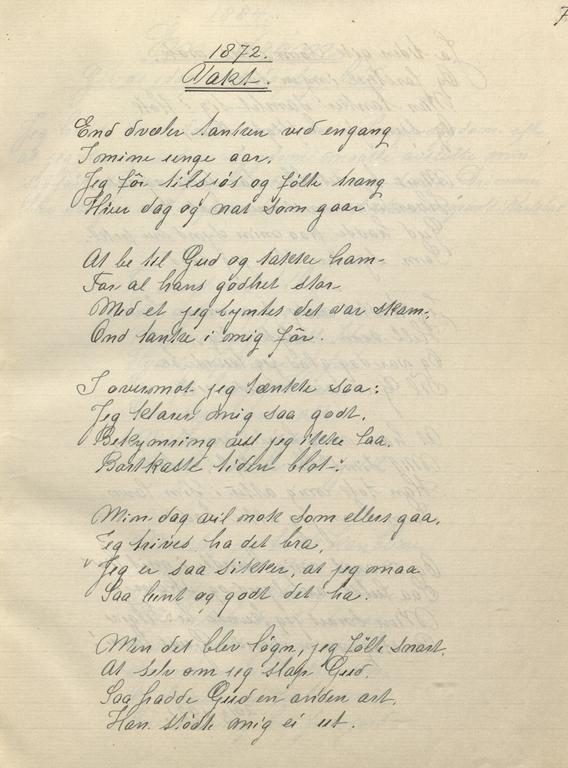 7
1872.
Vakt.
End dvæler tanken ved engang
I mine unge aar.
Jeg fór tilsjós og fólte trang
Hver dag og nat som gaar
At be til Gud og takke ham-
For al hans godhet stor
Med et jeg byntes det var skam,
Ond tanke i mig fór.
I overmot jeg tænkte saa:
Jeg klarer mig saa godt.
Bekymring vil jeg ikke ha.
Bortkaste tiden blot:
Min dag vil nok som ellers gaa,
Jeg trives ha det bra,
Jeg er saa sikker, at jeg maa
Saa lunt og godt det ha.
Men det blev lógn, jeg fólte snart.
At selv om jeg slap Gud.
Saa hadde Gud en anden art.
Han stódte mig ei ut.